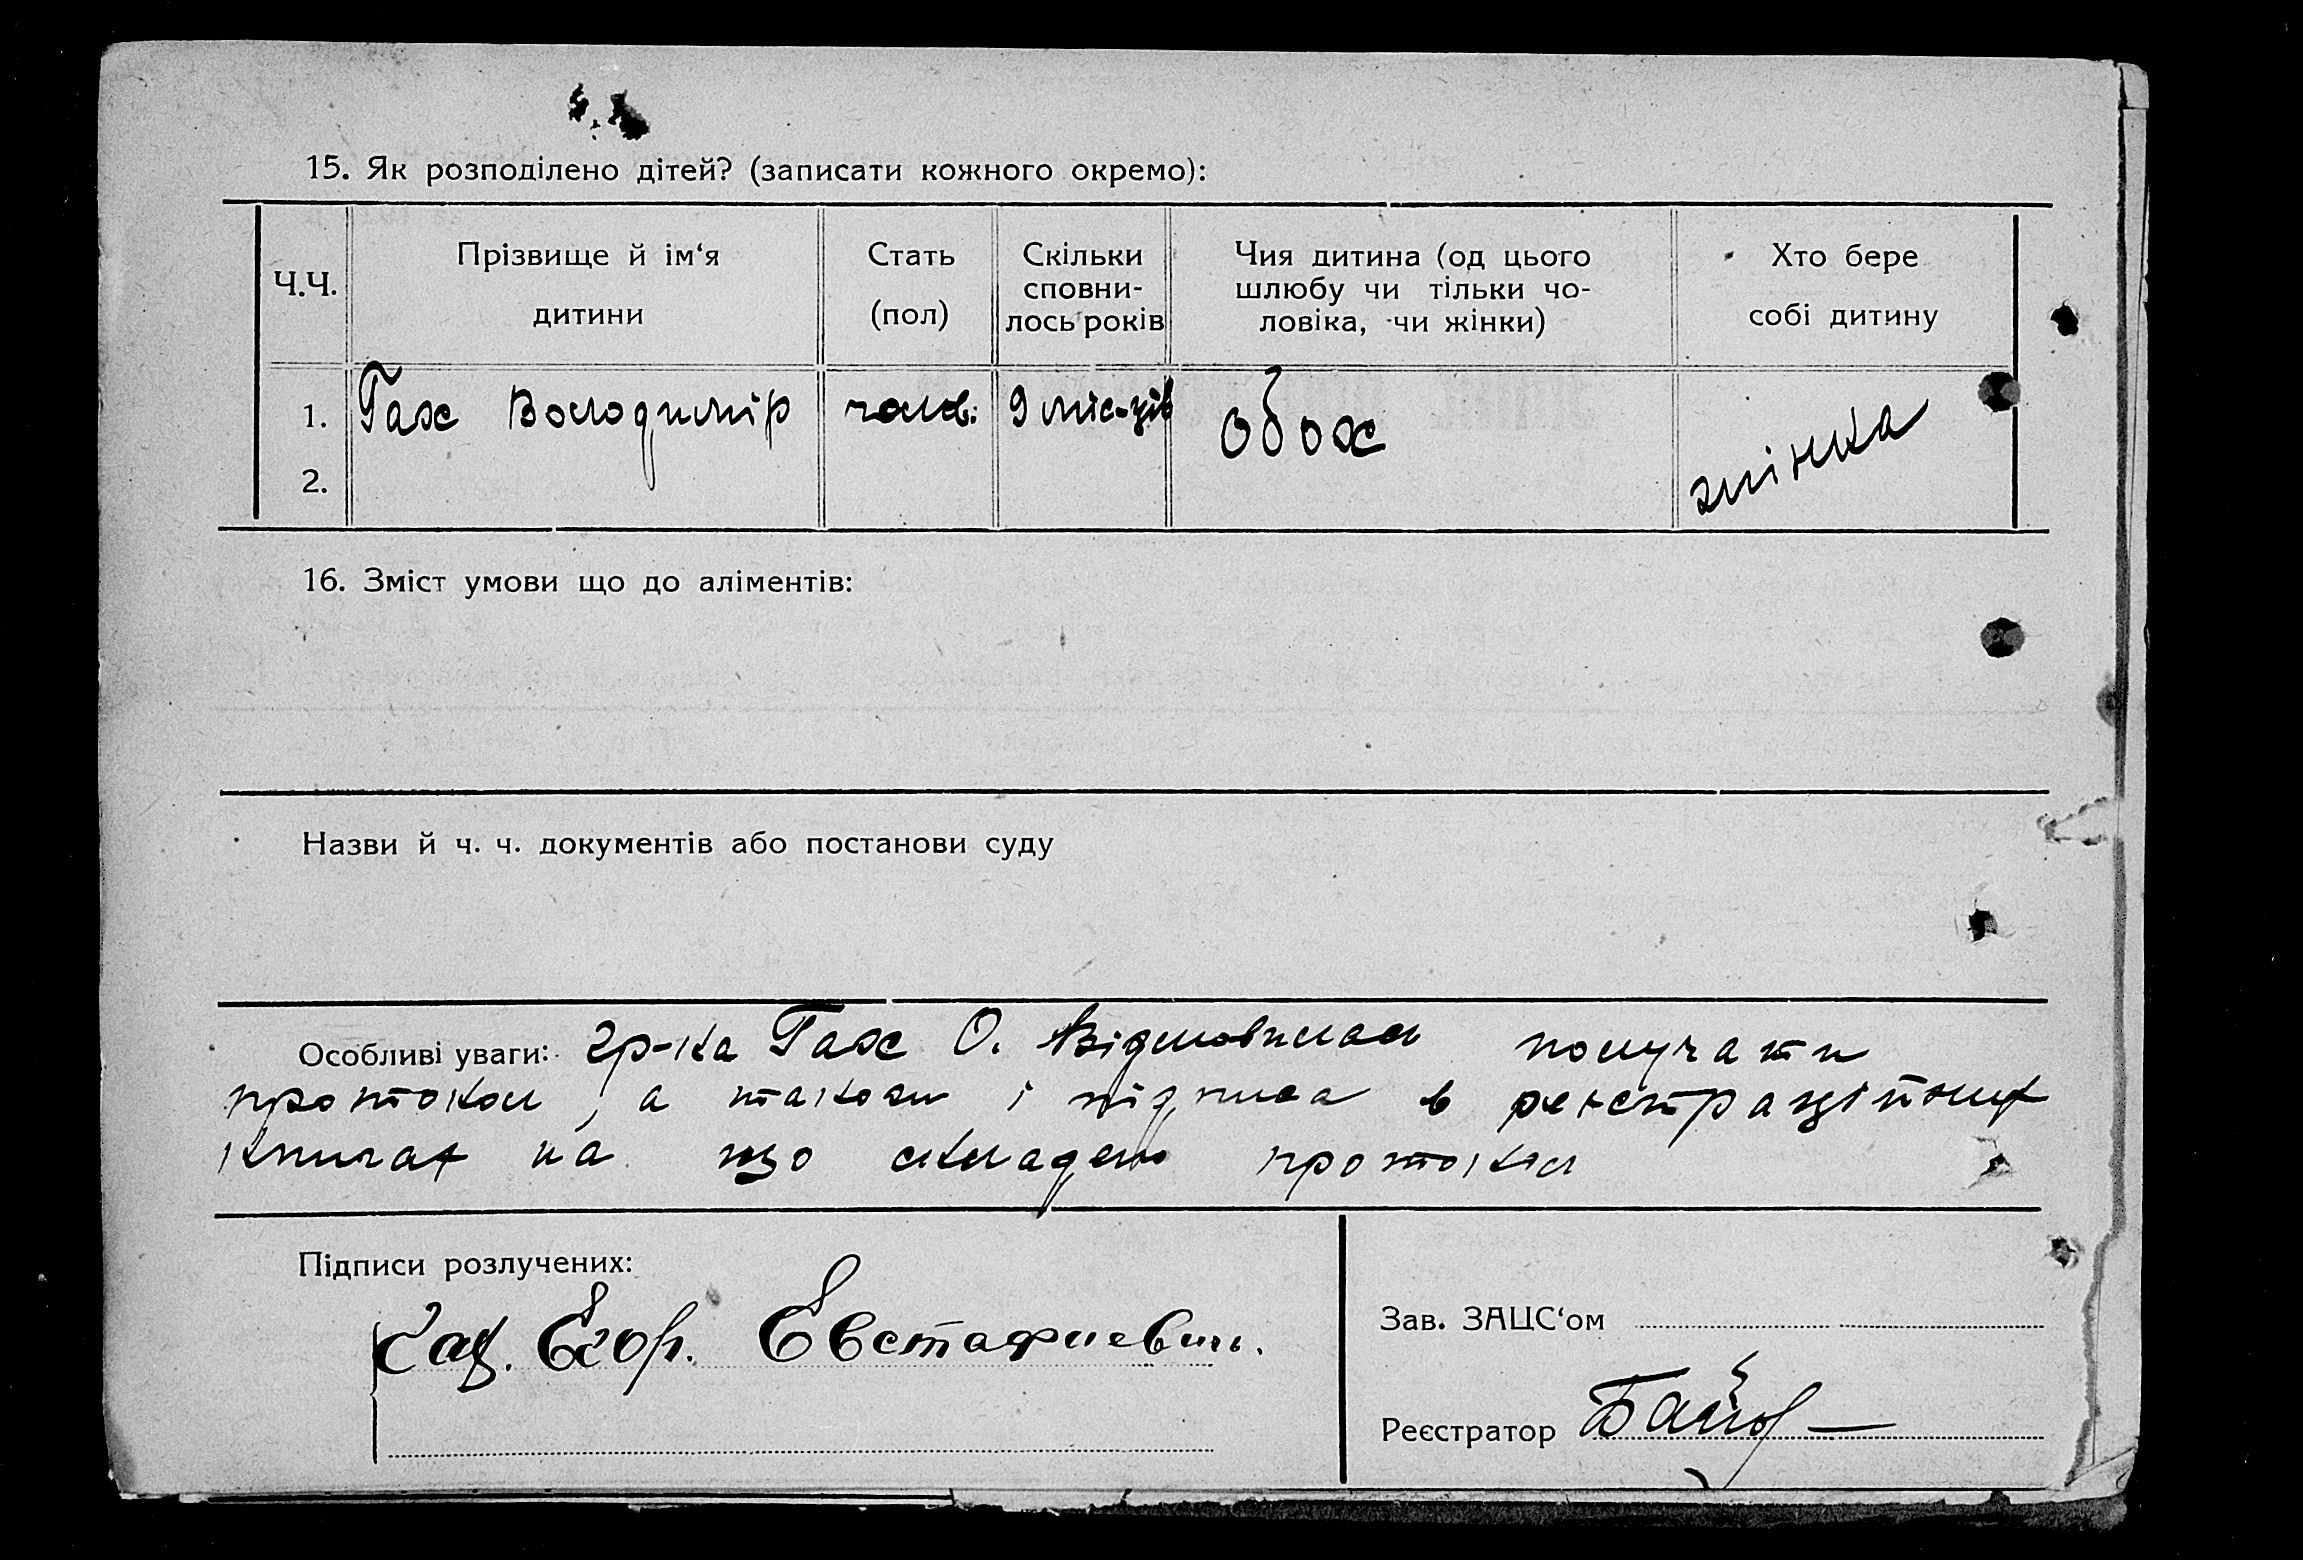 15. Як розподілено дітей? (записати кожного окремо):
Ч.Ч.
Прізвище й ім‘я
дитини
Стать
(пол)
Скільки
сповни-
лось років
Чия дитина (од цього
шлюбу чи тільки чо-
ловіка, чи жінки)
Хто бере
собі дитину
1. Гах Володимір чолов. 9 міс-ців Обох жінка
2.
16. Зміст умови що до аліментів:
Назви й ч. ч. документів або постанови суду
Особливі уваги: гр-ка Гах О. Відмовилась получати
протокол, а також і підписа в реєстраційних
книгах на що складено протокол
Підписи розлучених:
Гах. Егор. Евстафиевич.
Зав. ЗАЦС‘ом
Реєстратор